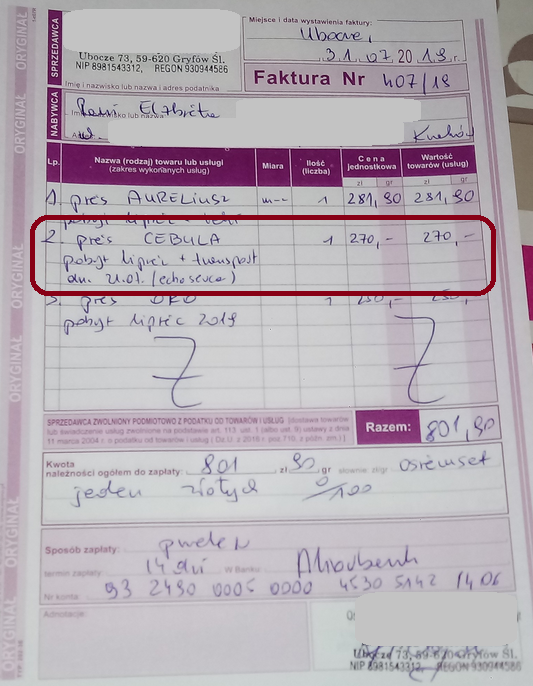 ORYGINAŁ
ORYGINAŁ
ORYGINAŁ
ORYGINAŁ
ORYGINAŁ
SPRZEDAWCA
Ubocze 73, 59-620 Gryfów Śl.
NIP 8981543312, REGON 930944586
Imię i nazwisko lub nazwa i adres podatnika
Miejsce i data wystawienia faktury:
Ubocze,
31.07.2019 r.
Faktura Nr 407/19
NABYWCA
Imię i nazwisko lub nazwa
Pani Elżbieta
ul.
Kraków
Lp. Nazwa (rodzaj) towaru lub usługi (zakres wykonanych usług) Miara Ilość (liczba) Cena jednostkowa Wartość towarów (usług)
zł gr zł gr
1. pies AURELIUSZ 1 281,90 281,90
pobyt lipiec + leki
2. pies CEBULA 1 270,- 270,-
pobyt lipiec + transport
dn. 21.07. (echo serca)
3. pies 1 250,- 250,-
pobyt lipiec 2019
SPRZEDAWCA ZWOLNIONY PODMIOTOWO Z PODATKU OD TOWARÓW I USŁUG (dostawa towarów
lub świadczenie usług zwolnione na podstawie art. 113 ust. 1 (albo ust. 9) ustawy z dnia
11 marca 2004 r. o podatku od towarów i usług
Razem: 801,90
Kwota
należności ogółem do zapłaty: 801 zł 90 gr słownie: zł/gr osiemset
jeden złotych 0/100
Sposób zapłaty: przelew
termin zapłaty: 14 dni W Banku:
Nr konta: 93 2490 0005 0000 4530 5142 1406
Adnotacje:
Ubocze 73, 59-620 Gryfów Śl.
NIP 8981543312, REGON 930944586